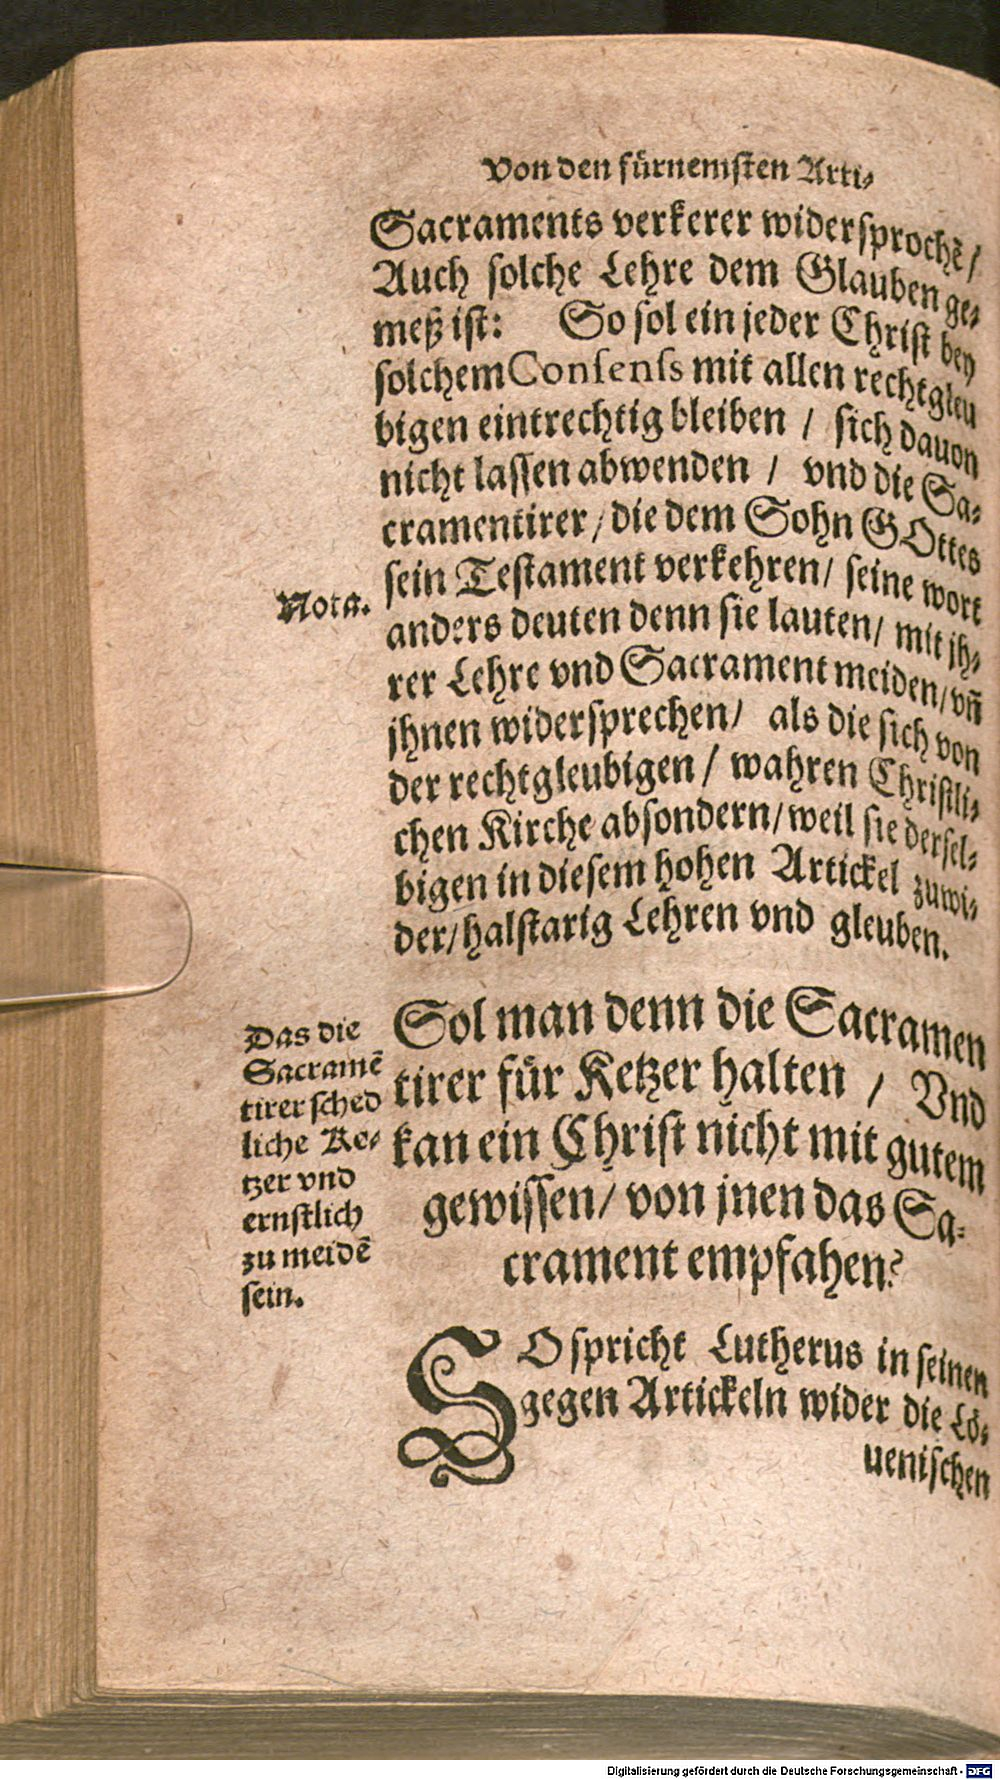 Von den fürnemſten Arti⸗
Sacraments verkerer widerſprochẽ /
Auch ſolche Lehre dem Glauben ge⸗
meß iſt: So ſol ein jeder Chriſt bey
ſolchem Conſenſs mit allen rechtgleu
bigen eintrechtig bleiben / ſich dauon
nicht laſſen abwenden / vnd die Sa⸗
cramentirer / die dem Sohn GOttes
ſein Teſtament verkehren / ſeine wort
Nota.
anders deuten denn ſie lauten / mit jh⸗
rer Lehre vnd Sacrament meiden / vñ
jhnen widerſprechen / als die ſich von
der rechtgleubigen / wahren Chriſtli⸗
chen Kirche abſondern / weil ſie derſel⸗
bigen in dieſem hohen Artickel zuwi⸗
der / halſtarig Lehren vnd gleuben.
Sol man denn die Sacramen
tirer für Ketzer halten / Vnd
kan ein Chriſt nicht mit gutem
gewiſſen / von jnen das Sa⸗
crament empfahen?
Das die
Sacramẽ
tirer ſched
liche Ke⸗
tzer vnd
ernſtlich
zu meidẽ
ſein.
SO ſpricht Lutherus in ſeinen
gegen Artickeln wider die Lö⸗
ueniſchen
Digitalisierung gefördert durch die Deutsche Forschungsgemeinschaft - DFG